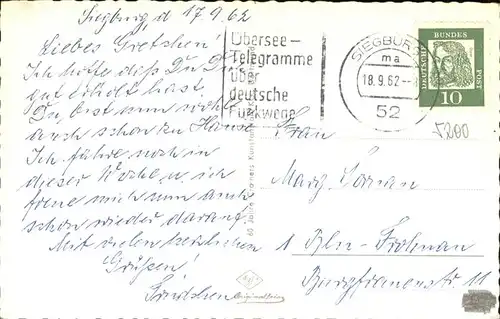 Siegburg, d 17.9.62
Liebes Gretchen!
Ich hoffe daß Du Dich
gut erholt hast.
Du bist nun wohl
auch schon zu Hause
Ich fahre noch in
dieser Woche u. ich
freue mich nun auch
schon wieder darauf.
Mit vielen herzlichen
Grüßen!
Übersee-
Telegramme
über
deutsche
Funkwege
SIEGBURG
ma
18.9.62
52
DEUTSCHE
BUNDES
POST
10
5200
Frau
Marg.
1 Bln-Frohnau
11
60 Jahre Cramers Kunstanstalt
Agfa
Originalfoto